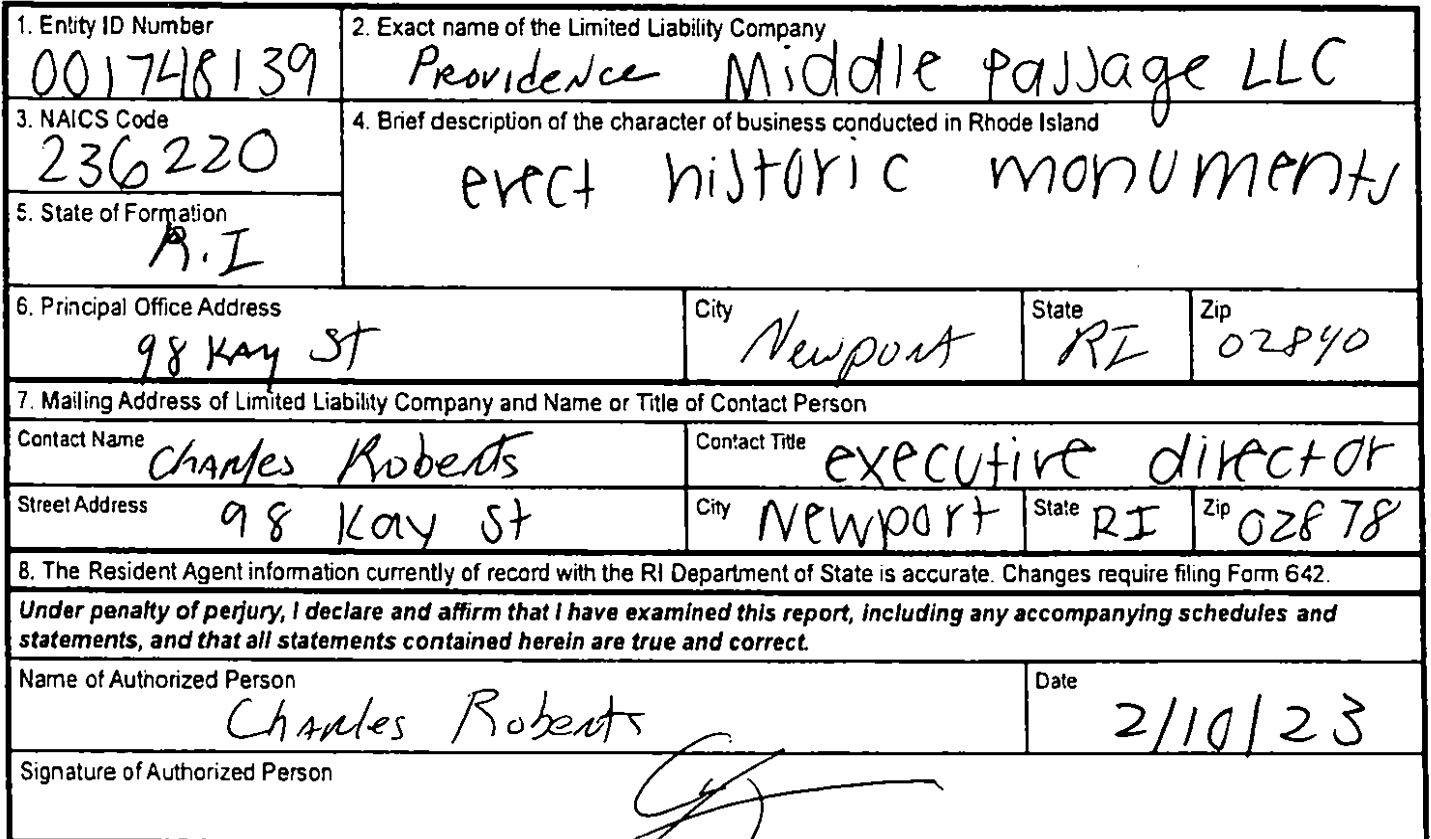 1. Entity ID Number
001748139
2. Exact name of the Limited Liability Company
Providence Middle Passage LLC
3. NAICS Code
236220
4. Brief description of the character of business conducted in Rhode Island
erect historic monuments
5. State of Formation
R.I
6. Principal Office Address
98 Kay St
City
Newport
State
RI
Zip
02840
7. Mailing Address of Limited Liability Company and Name or Title of Contact Person
Contact Name
Charles Roberts
Contact Title
executive director
Street Address
98 Kay St
City
Newport
State
RI
Zip
02878
8. The Resident Agent information currently of record with the RI Department of State is accurate. Changes require filing Form 642.
Under penalty of perjury, I declare and affirm that I have examined this report, including any accompanying schedules and
statements, and that all statements contained herein are true and correct.
Name of Authorized Person
Charles Roberts
Date
2/10/23
Signature of Authorized Person